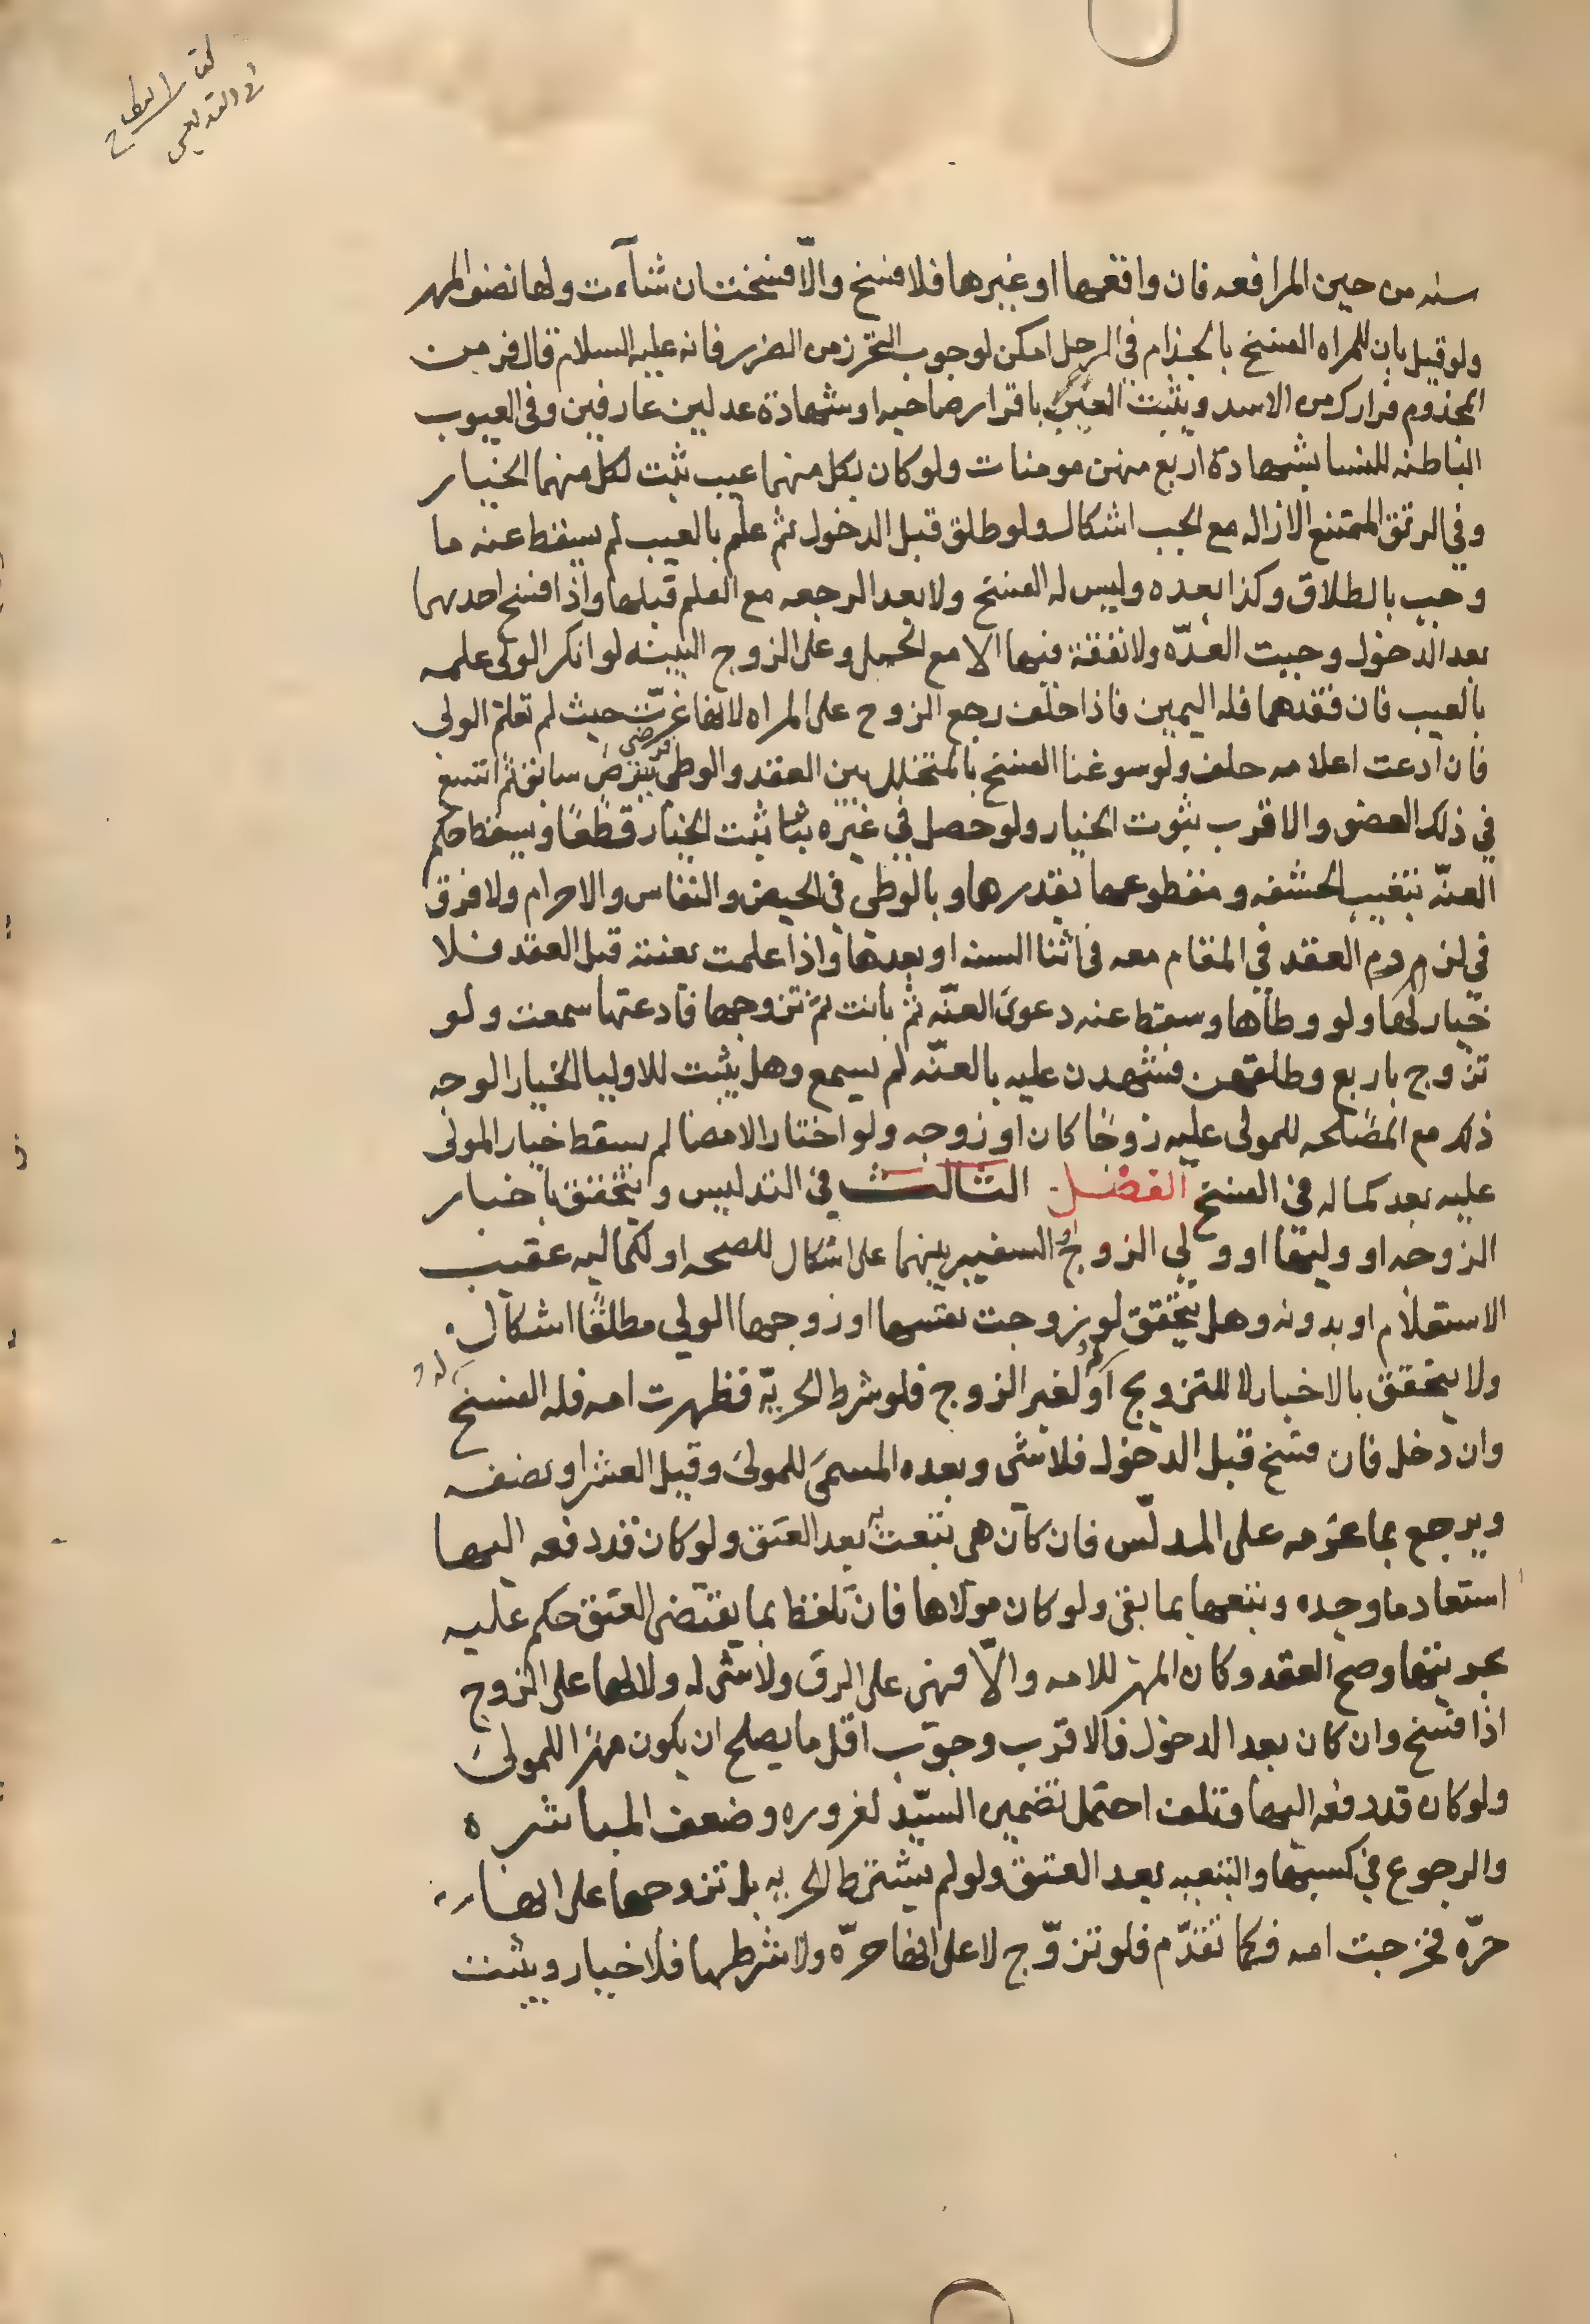 كتاب النكاح
في التدليس
سنه من حين المرافعه فان واقعها او غيرها فلا فسخ والّا فسخت ان شآءت ولها نصف المهر
ولو قيل بان للمراه الفسخ بالجذام في الرجل امكن لوجوب التحرز من الضرر فانه عليه السلام قال فر من
المجذوم فرارك من الاسد ويثبت العيب باقرار صاحبه او شهادة عدلين عارفين وفي العيوب
الباطنه للنسا بشهادة اربع منهن مومنات ولو كان بكل منهما عيب ثبت لكل منهما الخيار
وفي الرتق الممتنع الازاله مع الجب اشكال ولو طلق قبل الدخول ثم علم بالعيب لم يسقط عنه ما
وجب بالطلاق وكذا بعده وليس له الفسخ ولا بعد الرجعه مع العلم قبلها واذا فسخ احدهما
بعد الدخول وجبت العدّه ولا نفقة فيها الا مع الحمل وعلى الزوج البينه لو انكر الولى علمه
بالعيب فان فقدهما فله اليمين فاذا حلف رجع الزوج على المراه لانها غرّت حيث لم تعلم الولى
فان ادعت اعلامه حلف ولو سوغنا الفسخ بالمتخلل بين العقد والوطى فرضى ببرص سابق ثم اتسع
في ذلك العضو والاقرب ثبوت الخيار ولو حصل في غيره ثبت الخيار قطعًا ويسقط حكم
العنّه بتغيب الحشفه ومقطوعها بقدرها وبالوطى في الحيض والنفاس والاحرام ولا فرق
في لزوم العقد في المقام معه في اثنا السنه او بعدها واذا علمت بعننه قبل العقد فلا
خيار لها ولو وطاها وسقط عنه دعوى العنّه ثم بانت ثم تزوجها فادعتها سمعت ولو
تزوج باربع وطلقهن فشهدن عليه بالعنّه لم يسمع وهل يثبت للاوليا الخيار الوجه
ذلك مع المصلحه للمولى عليه زوجًا كان او زوجه ولو اختار الامضا لم يسقط خيار المولى
عليه بعد كماله في الفسخ الفصل الثالث في التدليس ويتحقق باخبار
الزوجه او وليها او ولي الزوج او السفير بينهما على اشكال للصحه او لكماليه عقيب
الاستعلام او بدونه وهل يتحقق لو زوجت نفسها او زوجها الولي مطلقًا اشكال
ولا يتحقق بالاخبار لا للتزويج او لغير الزوج فلو شرط الحريّه فظهرت امه فله الفسخ
وان دخل فان فسخ قبل الدخول فلا شى وبعده المسمى للمولى وقيل العشر او نصفه
ويرجع بما غرمه على المدلّس فان كان هي تبعت به بعد العتق ولو كان قد دفعه اليها
استعاد ما وجده وتبعها بما بقى ولو كان مولاها فان تلفظ بما يقتضى العتق حكم عليه
بحريتها وصح العقد وكان المهر للامه والّا فهى على الرق ولا شى له ولا لها على الزوج
اذا فسخ وان كان بعد الدخول فالاقرب وجوب اقل ما يصلح ان يكون مهرًا للمولى
ولو كان قد دفعه اليها وتلف احتمل تضمين السيّد لغروره وضعف المباشره
والرجوع في كسبها والتبعيه بعد العتق ولو لم يشترط الحريه بل تزوجها على انها
حرّه فخرجت امه فكما تقدّم فلو تزوّج لا على انها حرّه ولا شرطها فلا خيار ويثبت